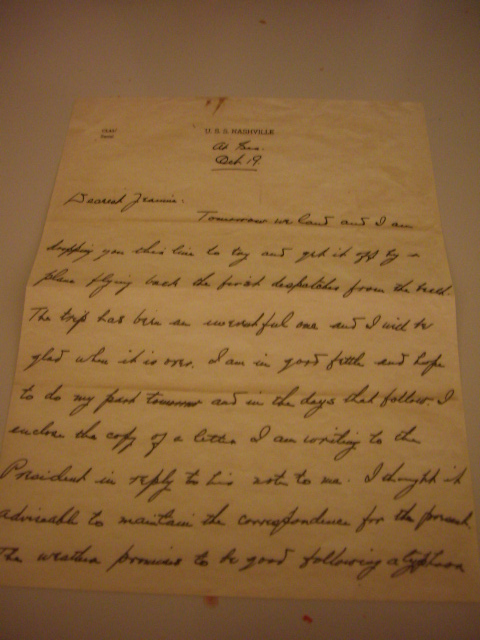 U. S. S. NASHVILLE
At Sea.
Oct 19
Dearest Jeannie:
Tomorrow we land and I am
dropping you this line to try and get it off by a
plane flying back the first despatches from the
The trip has been an uneventful one and I will be
glad when it is over. I am in good fettle and hope
to do my part tomorrow and in the days that follow. I
enclose the copy of a letter I am writing to the
President in reply to his note to me. I thought it
adviseable to maintain the correspondence for the present.
The weather promises to be good following a typhoon